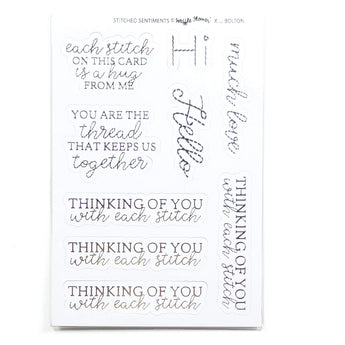 STITCHED SENTIMENTS
X BOLTON
each stitch
ON THIS CARD
is a hug
FROM ME
Hi
much love
YOU ARE THE
thread
THAT KEEPS US
together
Hello
THINKING OF YOU
with each stitch
THINKING OF YOU
with each stitch
THINKING OF YOU
with each stitch
THINKING OF YOU
with each stitch